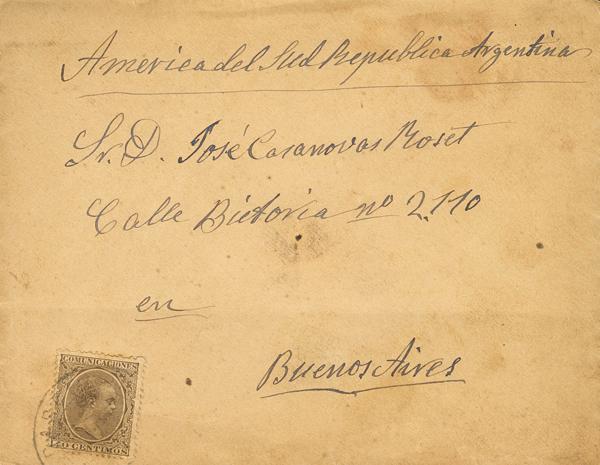 America del Sud Republica Argentina
Sr. D. José Casanovas Roset
Calle Bictoria nº 2,110
en
Buenos Aires
COMUNICACIONES
0 CENTIMOS